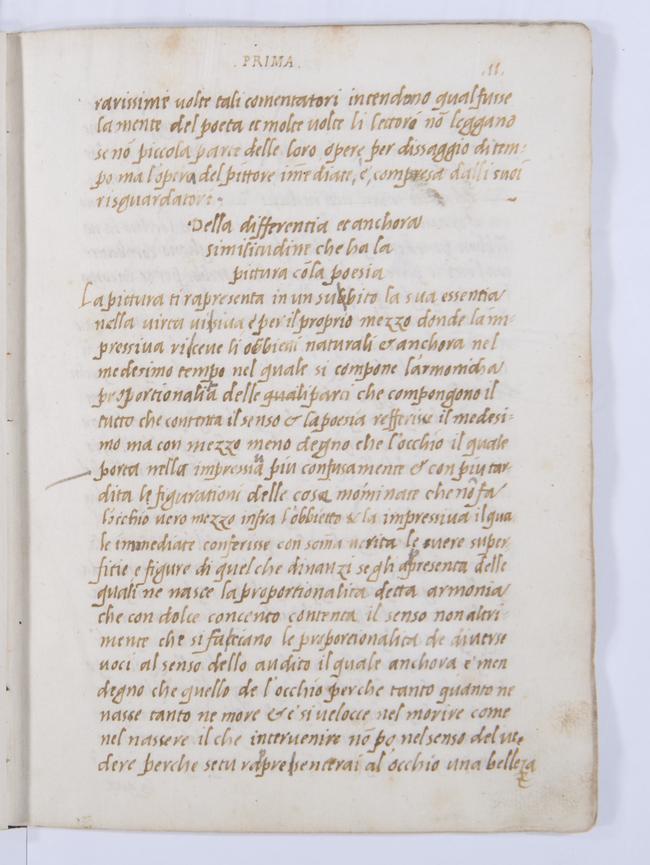 . PRIMA .
11.
rarissime volte tali comentatori intendano qual fusse
la mente del poeta et molte volte li lettori nõ leggano
se nõ piccola parte delle loro opere per dissaggio di tem-
po ma l'opera del pittore im̃ediate, è, compresa dalli suoi
risguardatori.
Della differentia et anchora
similitudine che ha la
pittura cõ la poesia
La pittura ti rapresenta in un subbito la sua essentia
nella virtu visiva e per il proprio mezzo donde la im-
pressiva riceve li obbietti naturali & anchora nel
medesimo tempo nel quale si compone l'armonicha
proportionalita delle quali parti che compongono il
tutto che contenta il senso & la poesia refferisse il medesi-
mo ma con mezzo meno degno che l'occhio il quale
porta nella impressiva piu confusamente & con piu tar-
dita le figurationi delle cose nominate che nõ fa
l'occhio vero mezzo infra l'obbietto & la impressiva il qua
le immediate conferisse con som̃a verita le vere super-
fitie e figure di quel che dinanzi se gli apresenta delle
quali ne nasce la proportionalita detta armonia
che con dolce concento contenta il senso non altri-
mente che si facciano le proportionalita de diverse
voci al senso dello audito il quale anchora e men
degno che quello de l'occhio perche tanto quanto ne
nasse tanto ne more & e si velocce nel morire come
nel nassere il che intervenire nõ po nel senso del ve-
dere perche se tu rapresenterai al occhio una bellezza